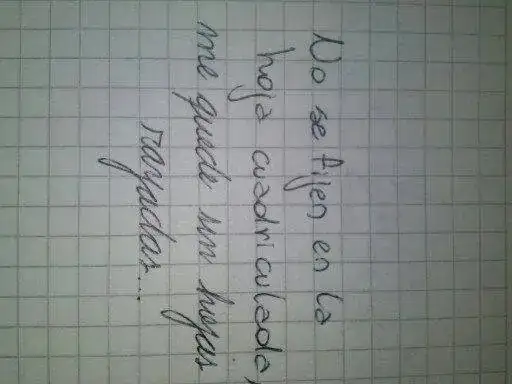 No se fijen en la
hoja cuadriculada,
me quede sin hojas
rayadas...